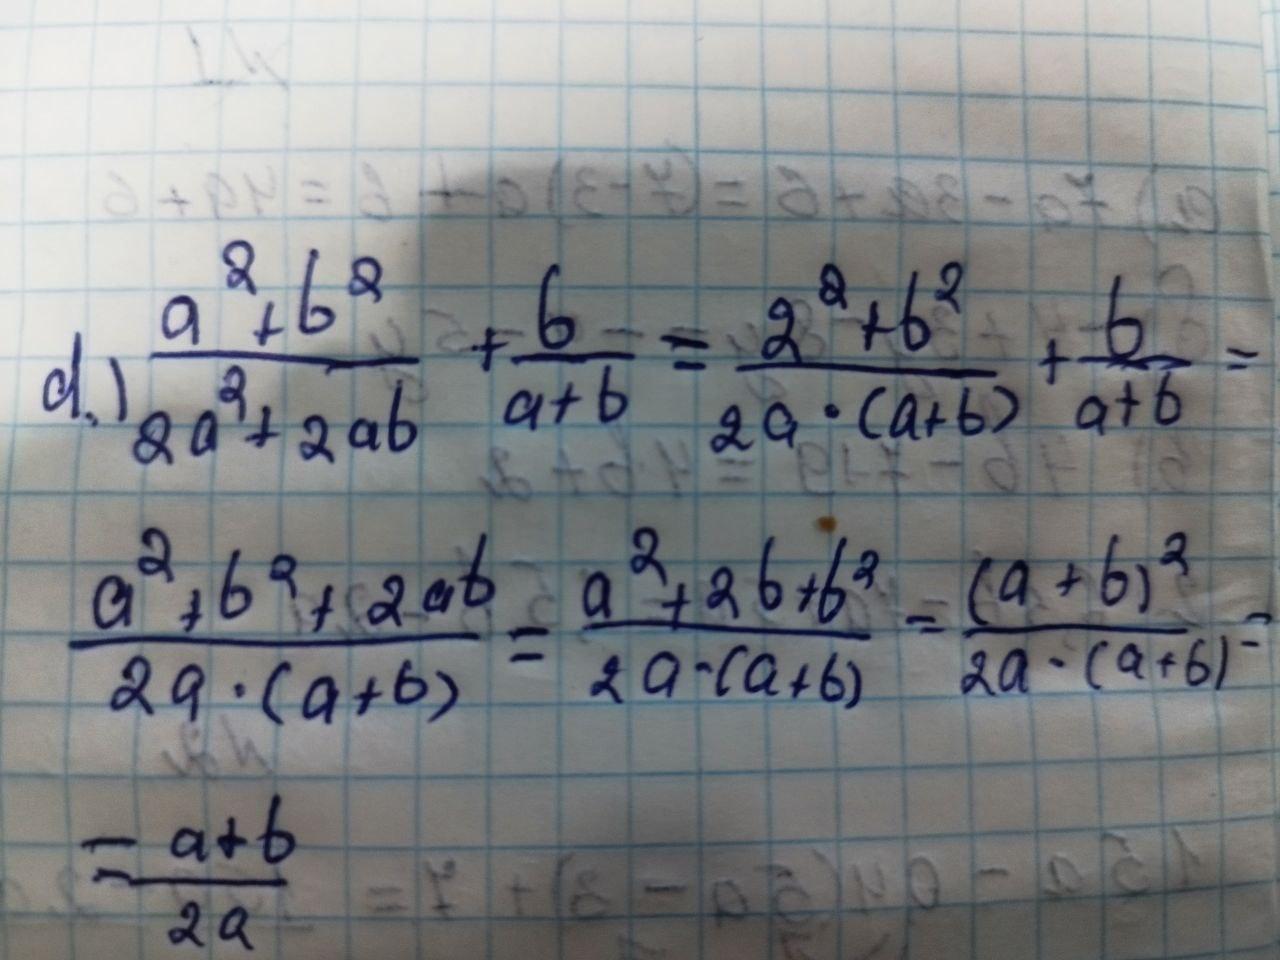 d.) (a²+b²)/(2a²+2ab) + b/(a+b) = (2²+b²)/(2a·(a+b)) + b/(a+b) =
(a²+b²+2ab)/(2a·(a+b)) = (a²+2b+b²)/(2a·(a+b)) = (a+b)²/(2a·(a+b)) =
= (a+b)/(2a)